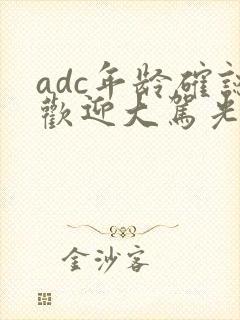 adc年龄確
歡迎大駕光
金沙客